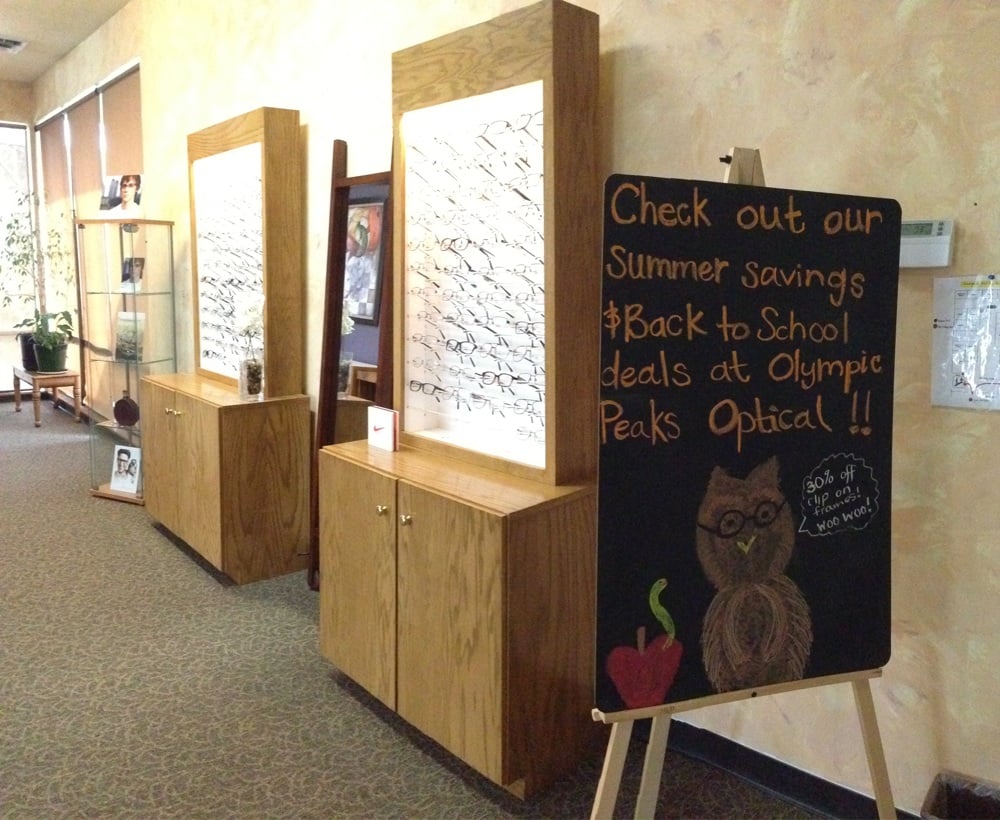 Check out our
Summer savings
$Back to School
deals at Olympic
Peaks Optical !!
30% off
clip on
frames!
woo woo!